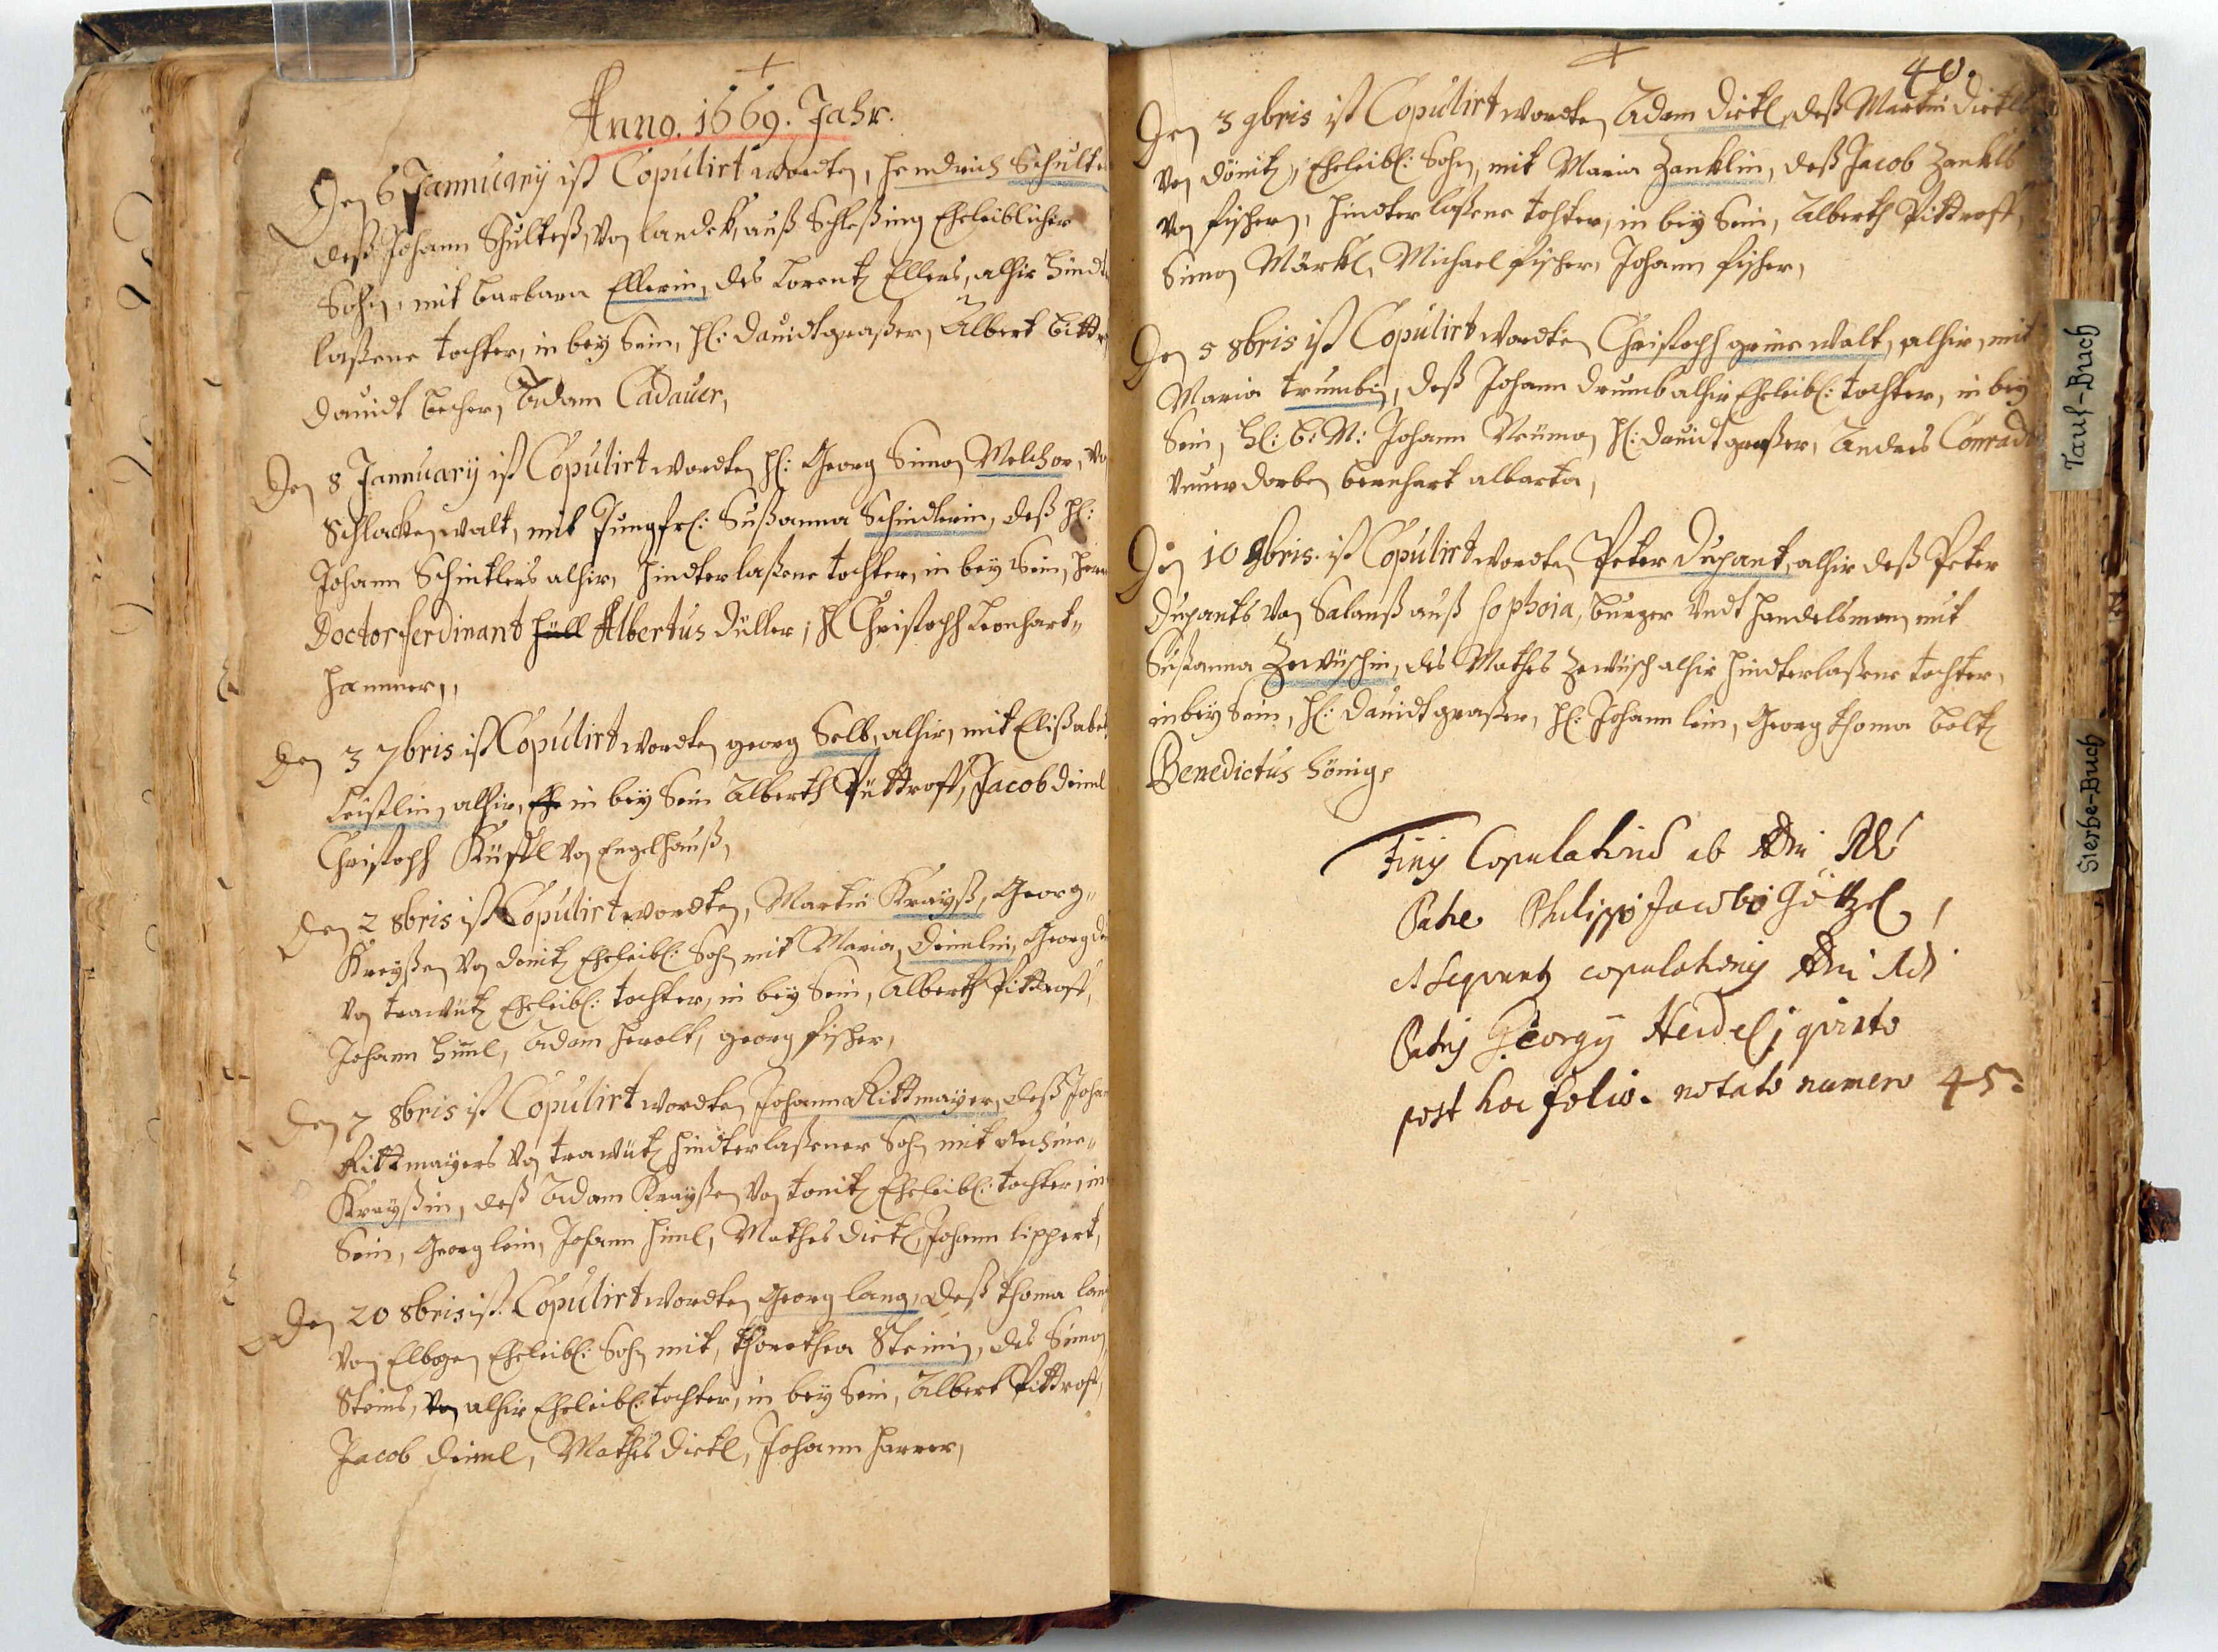 Anno. 1669. Jahr.
Den 6 Jannuarij ist Copulirt wordten, Hendrich Schulte
deß Johann Schulteß, Von landek, auß Schleßing Eheleiblicher
Sohn, mit Barbara Ellerin, des Lorentz Ellers, alhir Hindt
laßene tochter, in bey Sein, H: Dauidt graßer, Albert Bittr
Dauidt Becher, Adam Cadauer,
Den 8 Jannuarij ist Copulirt wordten H: Georg Simon Melchor, Vo
Schlackenwalt, mit Jungfr: Sußanna Schindlerin, deß H:
Johann Schintlers alhir, Hindterlaßene tochter, in bey Sein, Herr
Doctor ferdinant Albertus Düller, H Christoph Leonhart"
Hammer,,
Den 3 7bris ist Copulirt wordten georg Selb, alhir, mit Elißabet
Leistlin, alhir, in bey Sein Alberth Püttroff, Jacob Deiml
Christoph Küftl Von Engelhauß,
Den 2 8bris ist Copulirt wordten, Martin Krayß, Georg"
Kreyßen Von donitz Eheleibl: Sohn mit Maria, Deimlin, Georg De
Von trawütz Eheleibl: tochter, in bey Sein, Alberth Pittroff,
Johann Himl, Adam Herolt, georg fischer,
Den 7 8bris ist Copulirt wordten Johann Rittmayer, deß Johan
Rittmayers Von trawütz hindterlaßener Sohn mit Rechine"
Krayßin, deß Adam Krayßen Von tonitz Eheleibl: tochter, in
Sein, Georg lein, Johann Himl, Mathes Dietl, Johann lippert,
Den 20 8bris ist Copulirt wordten Georg lang, deß thoma lan
Von Elbogen Eheleibl: Sohn mit, thorethea Steinin, des Simon
Steins, Von alhir Eheleibl: tochter, in bey Sein, Albert Pittroff,
Jacob Deiml, Mathes Dietl, Johann Harrer,
40.
Den 3 9bris ist Copulirt wordten Adam Dietl, deß Martin Dietls
Von dönitz, Eheleibl: Sohn, mit Maria Zanklin, deß Jacob Zankls
Von fischern, hindterlaßene tohter, in bey Sein, Alberth Pittroff,
Simon Märkl, Michael fischer, Johann fischer,
Den 5 8bris ist Copulirt wordten Christoph grüne walt, alhir, mit
Maria trumbin, deß Johann drumb alhir Eheleibl: tochter, in bey
Sein, H: B: M: Johann H: Dauidt graßer, Andres Conradt
Bernhart albarta,
Den 10 9bris. ist Copulirt wordten Peter Dupant, alhir deß Peter
Dupants Von Salanß auß Sophoia, burger Vndt Handelsman, mit
Sußanna Zewüschin, des Mathes Zewüsch alhir Hindterlaßene tochter,
in bey Sein, H: Dauidt graßer, H: Johann lein, Georg thoma boltz
Benedictus Hönig,
Finis Copulationis ab Adm Rdo
Patre Philippo Jacobo Götzel,
et sequuntur copulationes Adm Rdi
Patris Georgij Heidel; quinto
post hoc folio. notato numero 45.
Tauf-Buch
Sterbe-Buch